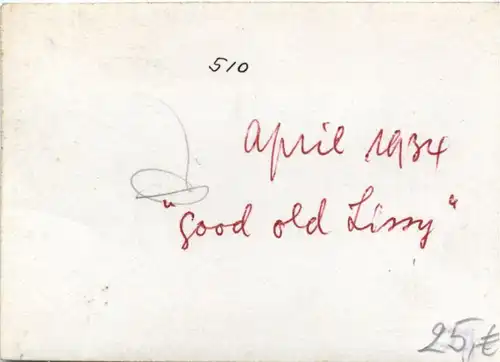 510
April 1934
"good old Lissy"
25,-€